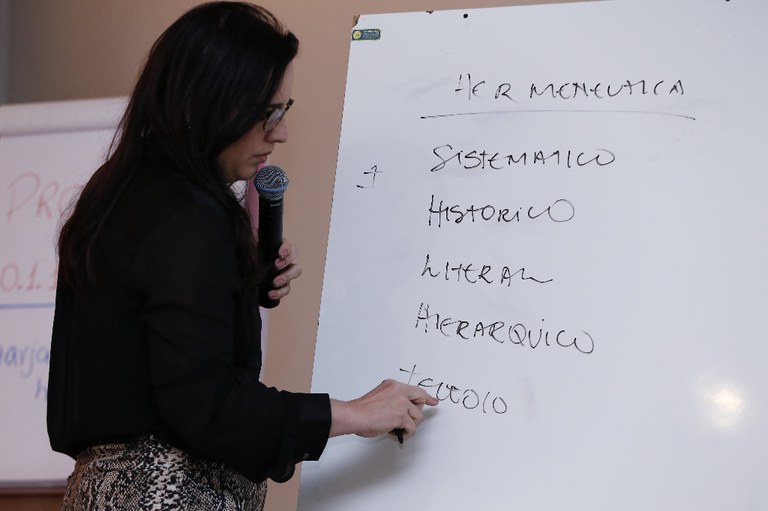 HERMENEUTICA
SISTEMATICO
HISTORICO
LITERAL
HIERARQUICO
TELEOLO
PRO
0.1.1